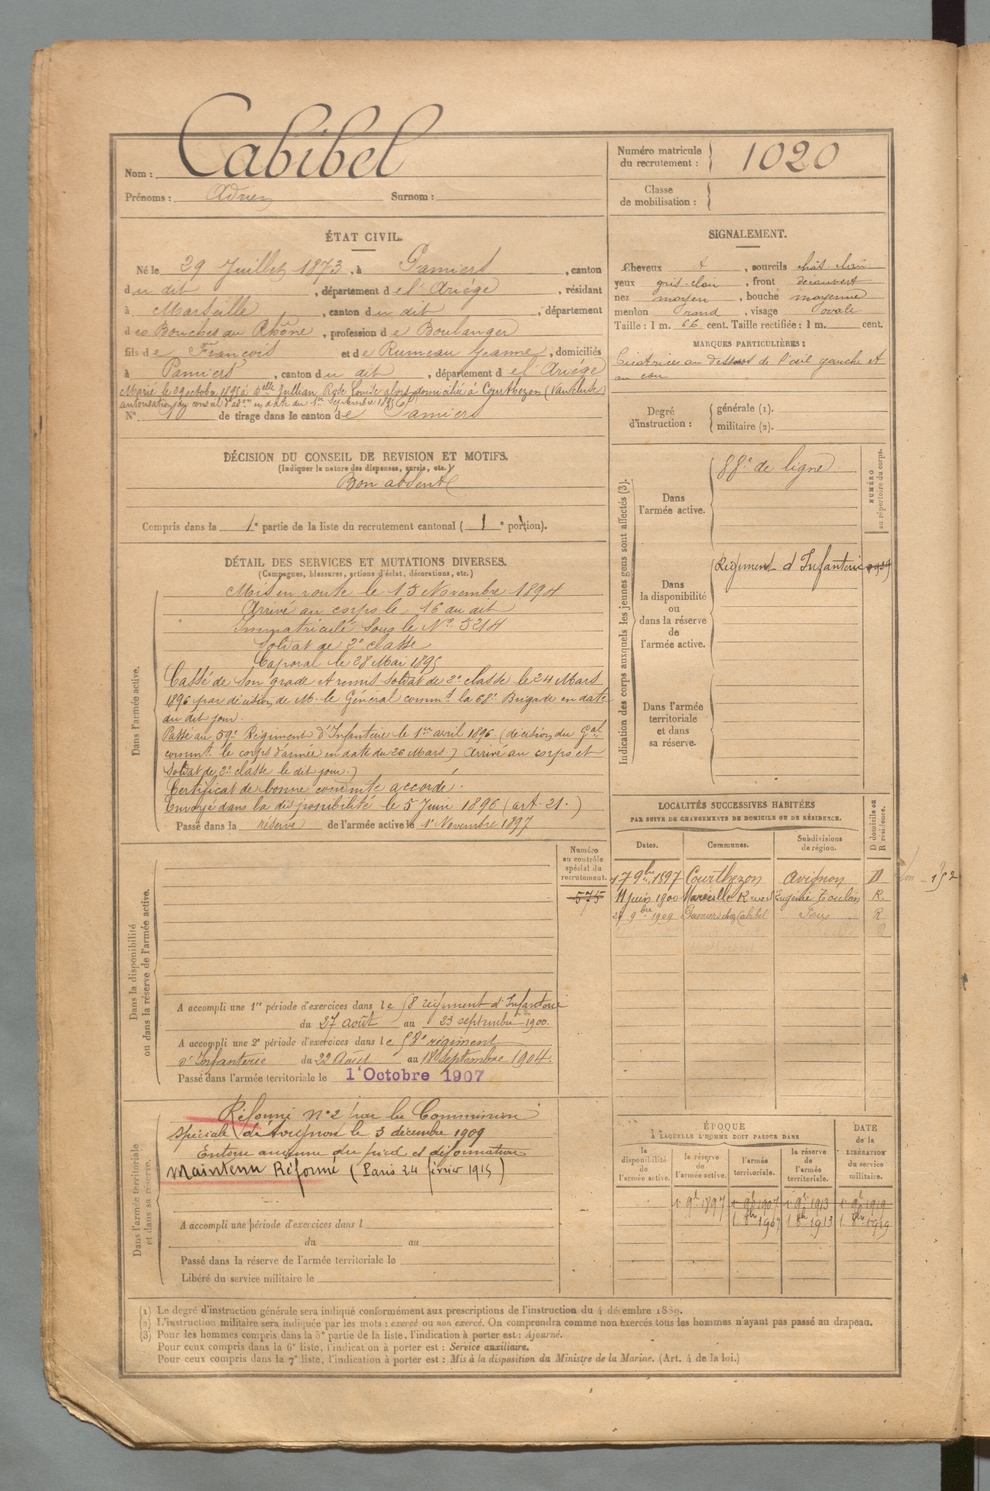 Nom : Cabibel
Prénoms : Adrien Surnom :
Numéro matricule du recrutement : 1020
Classe de mobilisation :
ÉTAT CIVIL.
Né le 29 Juillet 1873, à Pamiers, canton
du dit, département de l'Ariège, résidant
à Marseille, canton du dit, département
des Bouches du Rhône, profession de Boulanger
fils de François et de Rumeau Jeanne, domiciliés
à Pamiers, canton du dit, département de l'Ariège
Marié le 29 octobre 1898 à Dlle Jullian, Rose Louise alors domiciliée à Courthezon (Vaucluse)
autorisation du conseil d'adon en date du 1er septembre
N° de tirage dans le canton de Pamiers
SIGNALEMENT.
Cheveux A, sourcils chât. clair
yeux gris-clair, front découvert
nez moyen, bouche moyenne
menton rond, visage ovale
Taille : 1 m. 66 cent. Taille rectifiée : 1 m. cent.
MARQUES PARTICULIÈRES :
Cicatrice au dessous de l'œil gauche et
au cou
Degré d'instruction : générale (1).
militaire (2).
DÉCISION DU CONSEIL DE REVISION ET MOTIFS.
(Indiquer la nature des dispenses, sursis, etc.)
Bon absent
Compris dans la 1e partie de la liste du recrutement cantonal ( 1e portion).
DÉTAIL DES SERVICES ET MUTATIONS DIVERSES.
(Campagnes, blessures, actions d'éclat, décorations, etc.)
Dans l'armée active.
Mis en route le 15 Novembre 1894
Arrivé au corps le 16 du dit
Immatriculé sous le N° 5214
Soldat de 2e classe
Caporal le 28 Mai 1895
Cassé de son grade et remis soldat de 2e classe le 24 Mars
1896 par décision de M. le Général commt la 68e Brigade en date
du dit jour.
Passé au 59e Régiment d'Infanterie le 1er avril 1896 (décision du Gal
commt le corps d'armée en date du 26 Mars) Arrivé au corps et
soldat de 2e classe le dit jour.)
Certificat de bonne conduite accordé.
Envoyé dans la disponibilité le 5 Juin 1896 (art. 21.)
Passé dans la réserve de l'armée active le 1er Novembre 1897
Indication des corps auxquels les jeunes gens sont affectés (3).
Dans l'armée active.
88e de ligne
NUMÉRO au répertoire du corps.
Dans la disponibilité ou dans la réserve de l'armée active.
Régiment d'Infanterie
Dans l'armée territoriale et dans sa réserve.
LOCALITÉS SUCCESSIVES HABITÉES
PAR SUITE DE CHANGEMENTS DE DOMICILE OU DE RÉSIDENCE.
Dates. Communes. Subdivisions de région. D domicile ou R résidence.
17 9bre 1897 Courthezon Avignon D
11 juin 1900 Marseille R Eugénie Toulon R
27 9bre 1909 Pamiers chez Cabibel Foix R
Dans la disponibilité ou dans la réserve de l'armée active.
Numéro au contrôle spécial du recrutement.
575
A accompli une 1re période d'exercices dans le 58 régiment d'Infanterie
du 27 août au 23 septembre 1900.
A accompli une 2e période d'exercices dans le 58e régiment
d'Infanterie du 22 Août au 18 septembre 1904.
Passé dans l'armée territoriale le 1er Octobre 1907
Dans l'armée territoriale et dans sa réserve.
Réformé n° 2 par la Commission
spéciale d'Avignon le 3 décembre 1909
Entorse ancienne du pied et déformation
Maintenu Réformé (Paris 24 février 1915)
A accompli une période d'exercices dans l
du au
Passé dans la réserve de l'armée territoriale le
Libéré du service militaire le
ÉPOQUE
À LAQUELLE L'HOMME DOIT PASSER DANS
la disponibilité de l'armée active. la réserve de l'armée active. l'armée territoriale. la réserve de l'armée territoriale.
DATE de la LIBÉRATION du service militaire.
1 9b 1897 1 9b 1907 1 9b 1913 1 9b 1919
1 8bre 1907 1 8b 1913 1 8bre 1919
(1) Le degré d'instruction générale sera indiqué conformément aux prescriptions de l'instruction du 4 décembre 1889.
(2) L'instruction militaire sera indiquée par les mots : exercé ou non exercé. On comprendra comme non exercés tous les hommes n'ayant pas passé au drapeau.
(3) Pour les hommes compris dans la 5e partie de la liste, l'indication à porter est : Ajourné.
Pour ceux compris dans la 6e liste, l'indication à porter est : Service auxiliaire.
Pour ceux compris dans la 7e liste, l'indication à porter est : Mis à la disposition du Ministre de la Marine. (Art. 4 de la loi.)